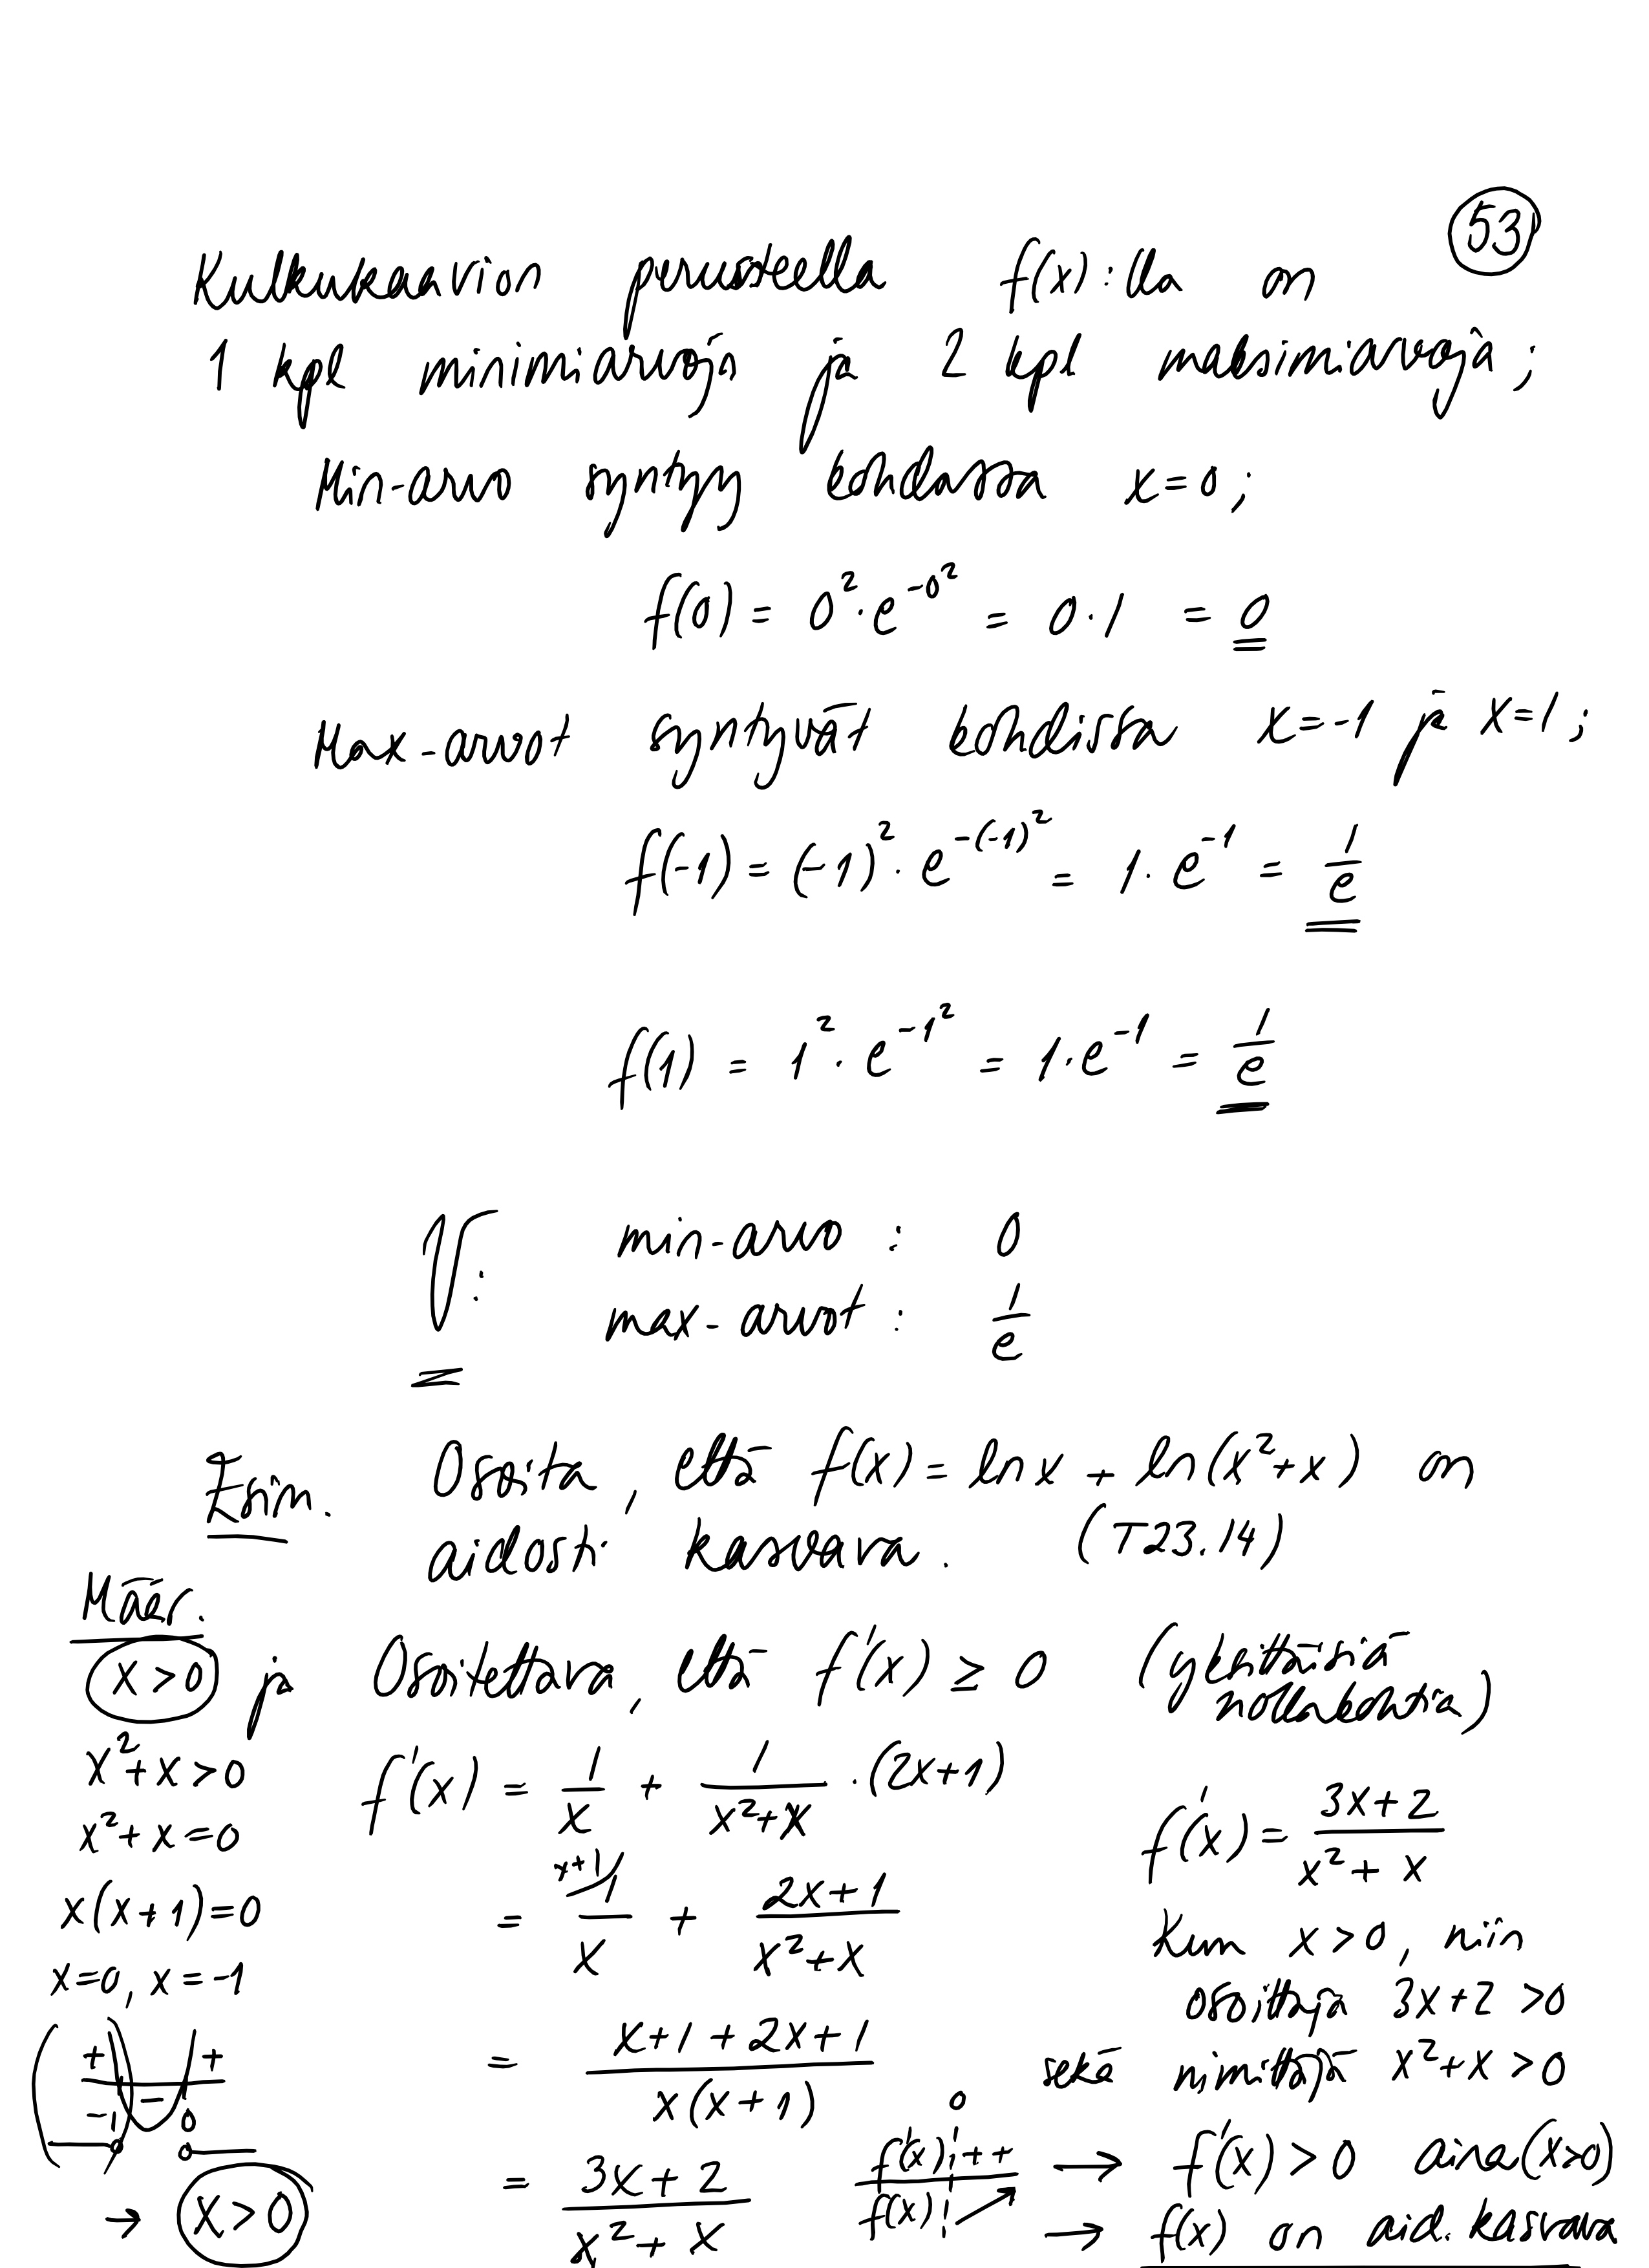 53
Kulkukaavion perusteella f(x):lla on
1 kpl minimiarvoja ja 2 kpl maksimiarvoja ;
Min-arvo syntyy kohdassa x=0 ;
f(0) = 0²·e^{-0²} = 0·1 = 0
Max-arvot syntyvät kohdissa x=-1 ja x=1 ;
f(-1) = (-1)²·e^{-(-1)²} = 1·e^{-1} = 1/e
f(1) = 1²·e^{-1²} = 1·e^{-1} = 1/e
V: min-arvo : 0
max-arvot : 1/e
Esim. Osoita, että f(x) = ln x + ln(x²+x) on
aidosti kasvava. (T23.14)
Määr.
x>0 ja
x²+x>0
x²+x=0
x(x+1)=0
x=0, x=-1
+ - +
-1 0
→ x>0
Osoitettava, että f'(x) ≥ 0 (yksittäisiä
nollakohtia)
f'(x) = 1/x + 1/(x²+x) ·(2x+1)
= x+1) 1/x + (2x+1)/(x²+x)
= (x+1+2x+1)/(x(x+1))
= (3x+2)/(x²+x)
f'(x) = (3x+2)/(x²+x)
Kun x>0, niin
osoittaja 3x+2 >0
sekä nimittäjä x²+x >0
0
f'(x) ++ → f'(x) > 0 aina (x>0)
f(x) ↗ → f(x) on aid. kasvava